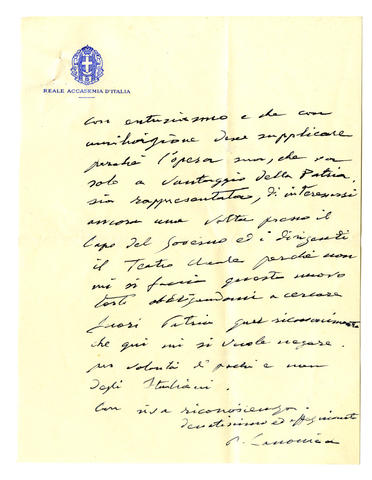 REALE ACCADEMIA D'ITALIA
con entusiasmo e che con
umiliazione deve supplicare
perchè l'opera sua, che va
solo a vantaggio della Patria,
sia rappresentata, di interessarsi
ancora una volta presso il
Capo del Governo ed i dirigenti
il Teatro Reale perchè non
mi si faccia questo nuovo
torto obbligandomi a cercare
fuori Patria quel riconoscimento
che qui mi si vuole negare
per volontà di pochi e non
degli Italiani.
Con viva riconoscenza
devotissimo ed affezionato
P. Canonica